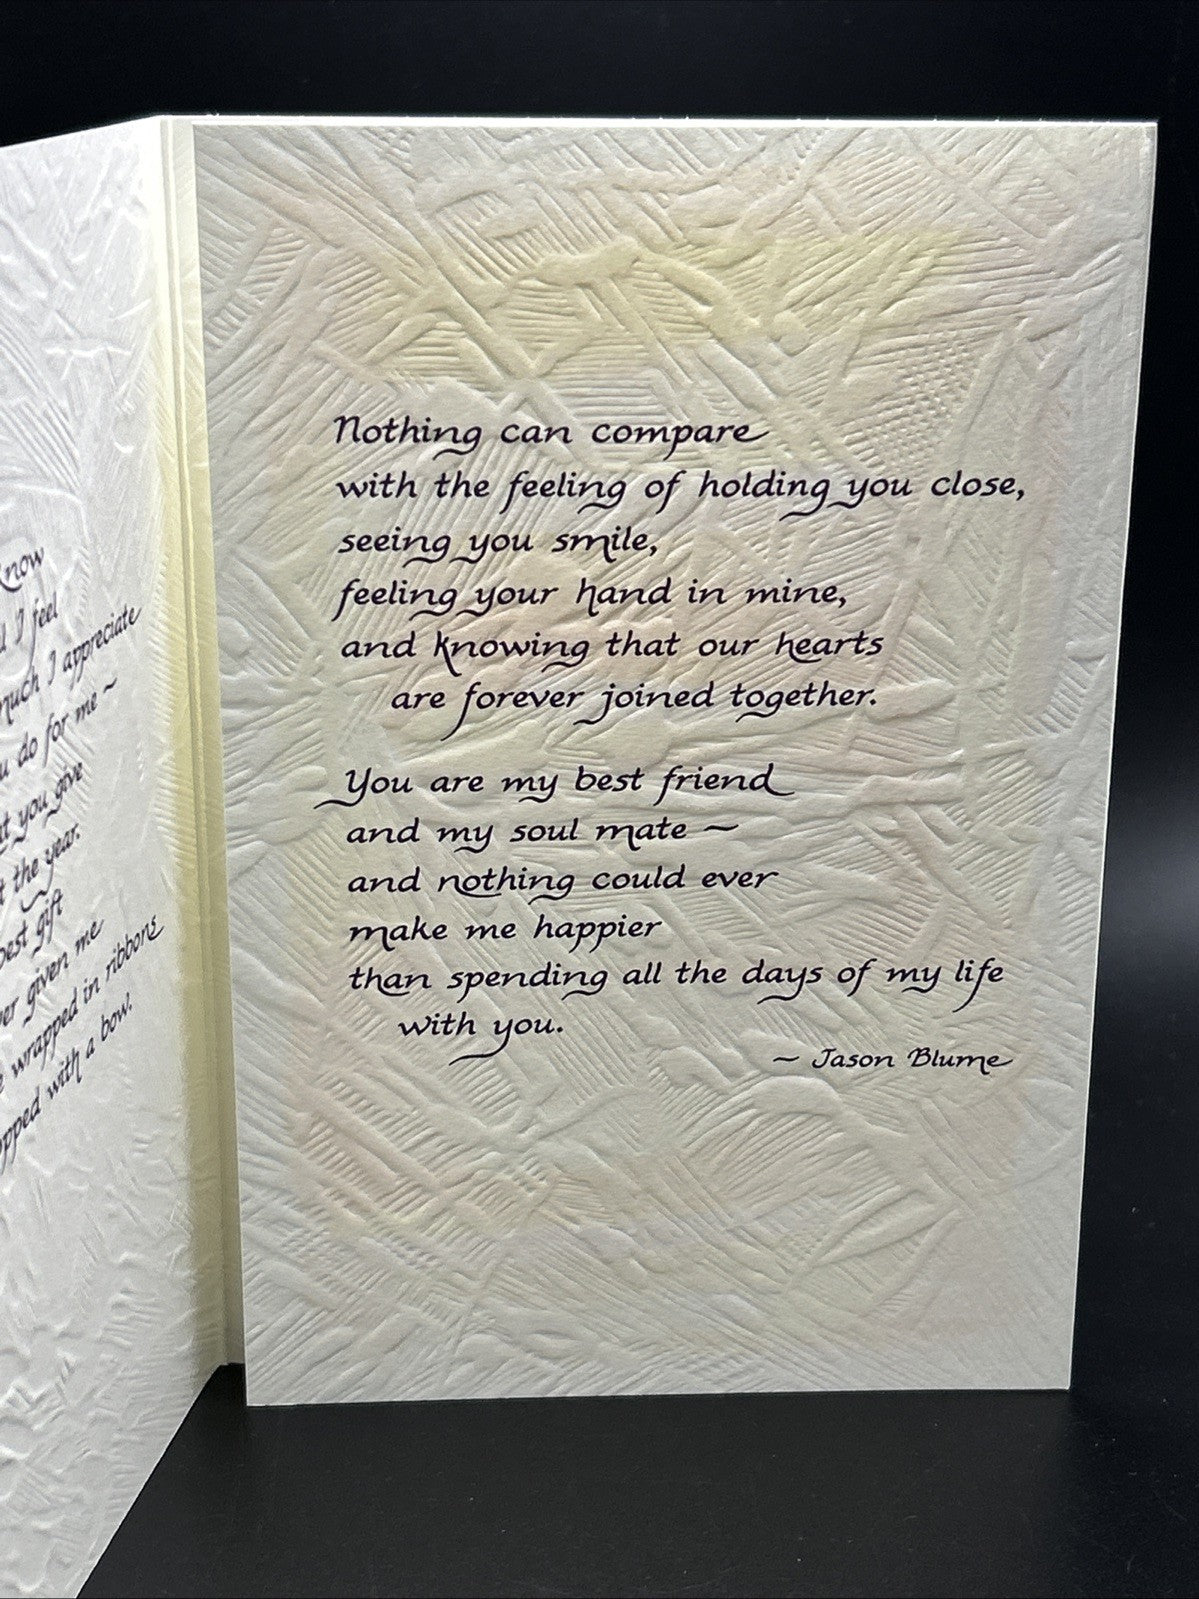 know
I feel
much I appreciate
do for me ~
you give
the year.
best gift
given me
wrapped in ribbons
with a bow.
Nothing can compare
with the feeling of holding you close,
seeing you smile,
feeling your hand in mine,
and knowing that our hearts
are forever joined together.
You are my best friend
and my soul mate ~
and nothing could ever
make me happier
than spending all the days of my life
with you.
~ Jason Blume